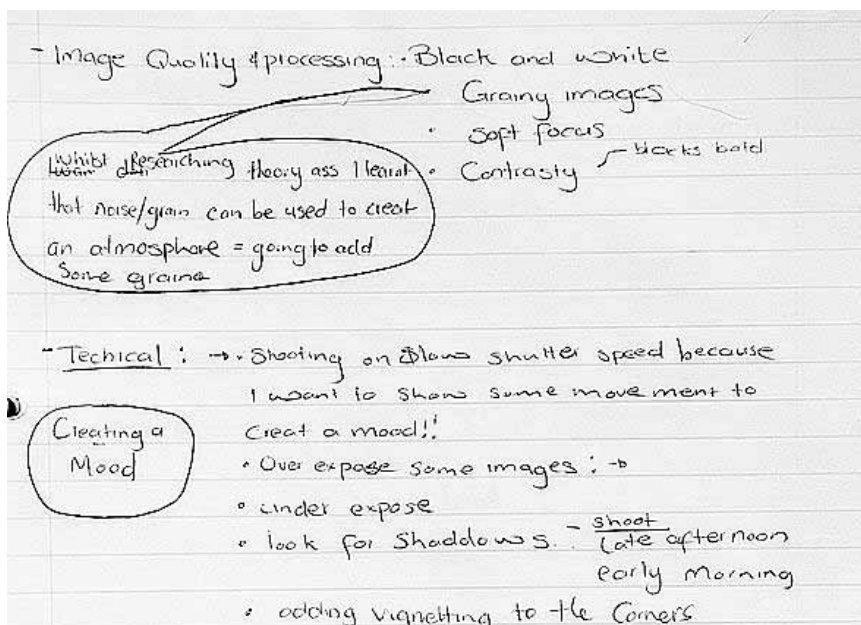 - Image Quality & processing: • Black and white
Grainy images
• Soft focus
• Contrasty - blacks bold
Whilst Researching theory ass I learnt
that noise/grain can be used to creat
an atmosphere = going to add
Some graine
- Techical : → • Shooting on Slow shutter speed because
I want to show some movement to
creat a mood!!
Creating a
Mood
• Over expose some images : →
• under expose
• look for Shaddows. - shoot
late afternoon
early morning
• adding vignetting to the Corners